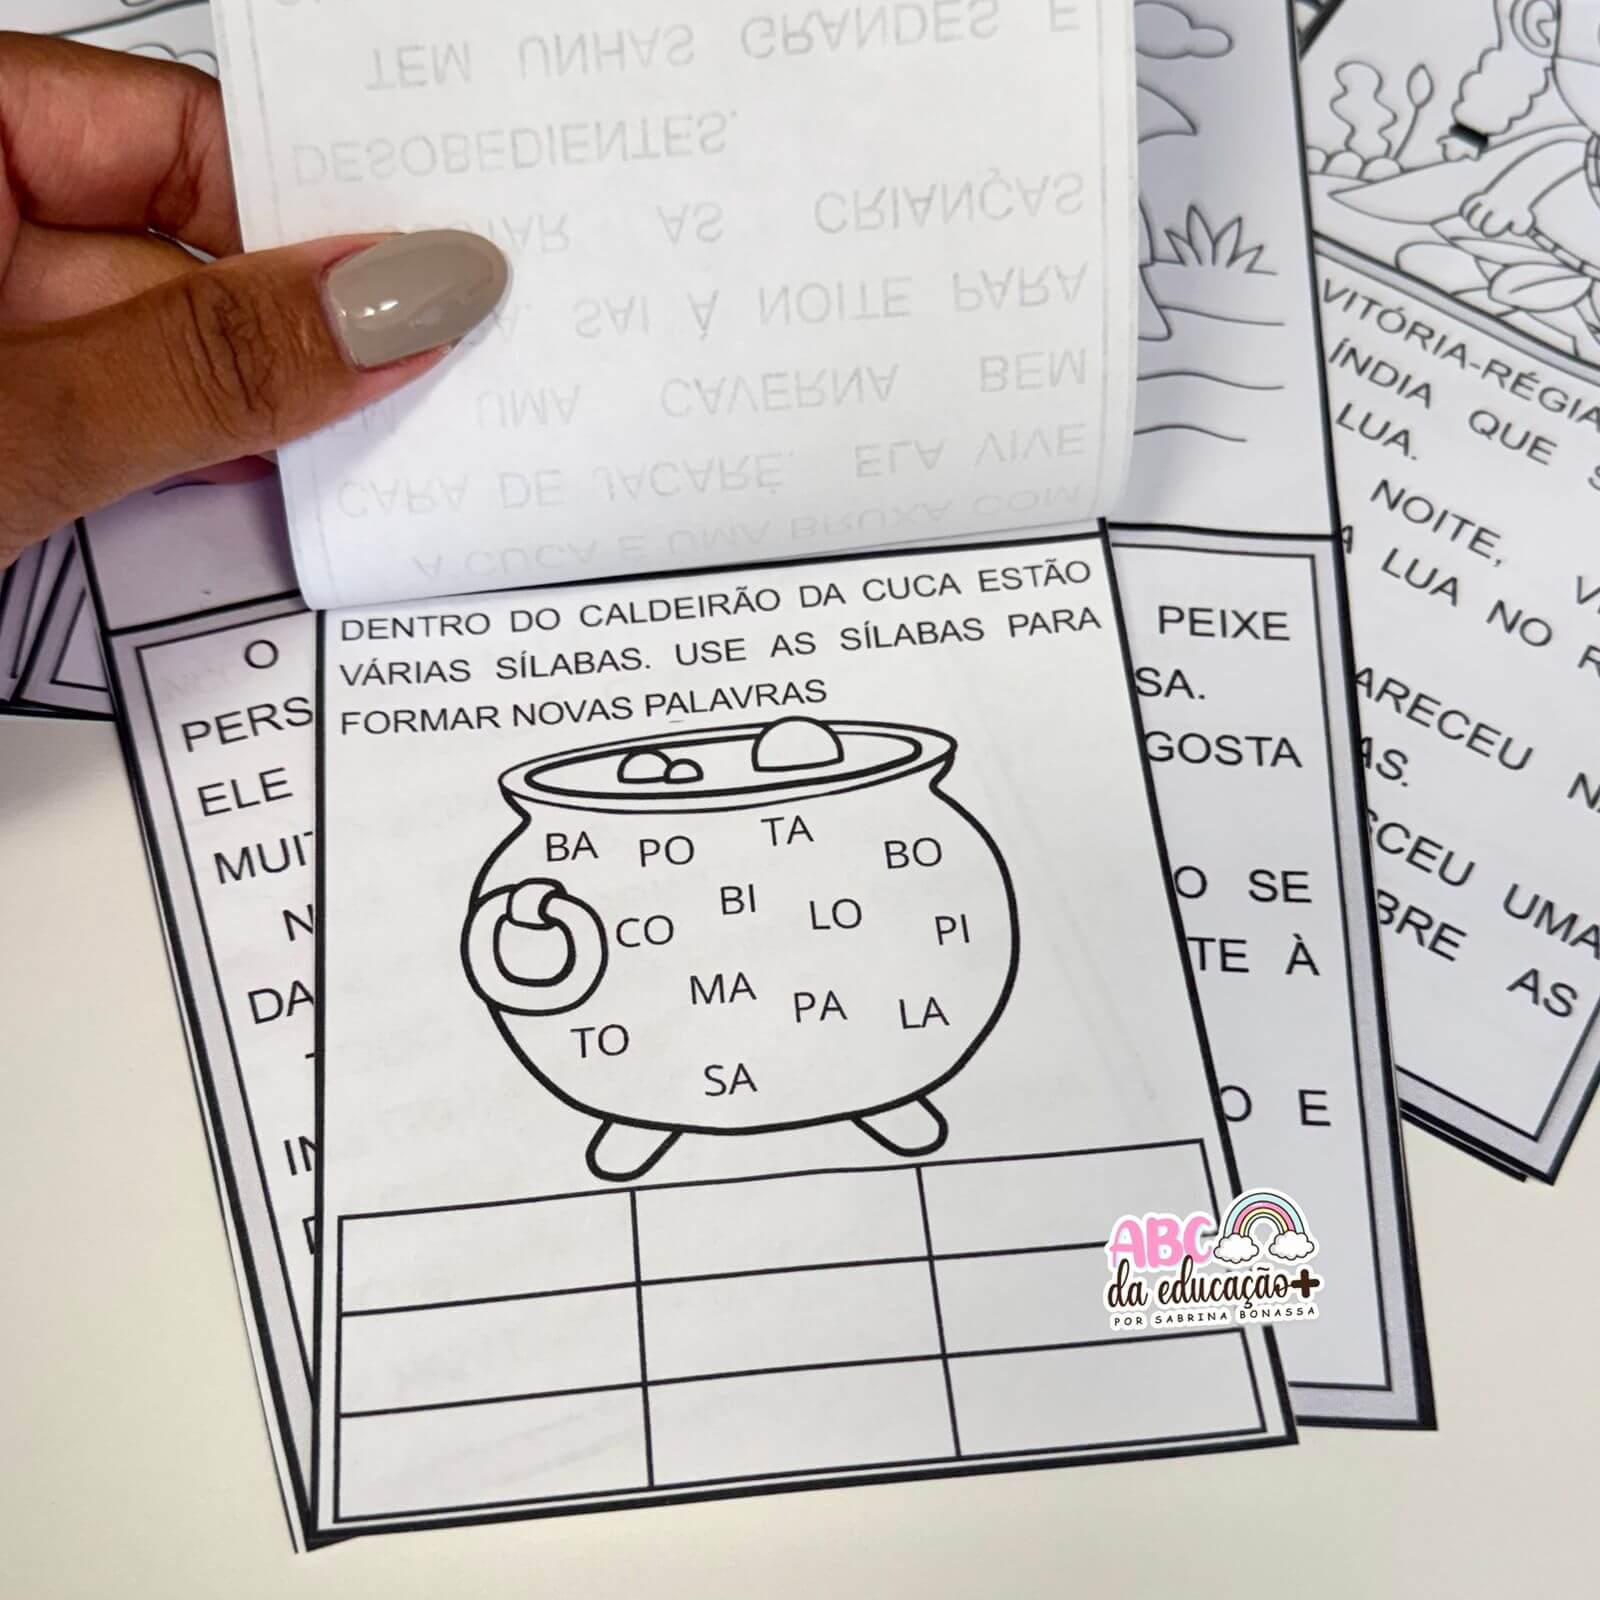 TEM UNHAS GRANDES E
DESOBEDIENTES.
AS CRIANÇAS
SAI À NOITE PARA
UMA CAVERNA BEM
CARA DE JACARÉ. ELA VIVE
A CUCA É UMA BRUXA COM
DENTRO DO CALDEIRÃO DA CUCA ESTÃO
VÁRIAS SÍLABAS. USE AS SÍLABAS PARA
FORMAR NOVAS PALAVRAS
BA PO TA BO
CO BI LO PI
MA PA LA
TO SA
O
PERS
ELE
MUIT
N
DA
PEIXE
SA.
GOSTA
O SE
TE À
O E
VITÓRIA-RÉGIA
ÍNDIA QUE S
LUA.
NOITE, V
A LUA NO R
ARECEU NA
AS.
SCEU UMA
BRE AS
ABC
da educação+
POR SABRINA BONASSA